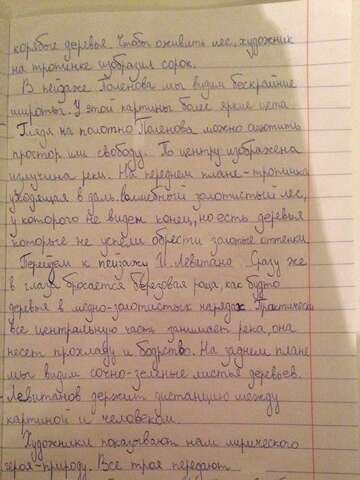 корявые деревья. Чтобы оживить лес, художник
на тропинке изобразил сорок.
В пейзаже Поленова мы видим бескрайние
широты. У этой картины более яркие цвета
Глядя на полотно Поленова можно ощутить
простор или свободу. По центру изображена
излучина реки. На переднем плане-тропинка
уходящая в даль. волшебный золотистый лес,
у которого не виден конец, но есть деревья
которые не успели обрести золотые оттенки.
Перейдем к пейзажу И. Левитана. Сразу же
в глаза бросается березовая роща, как будто
деревья в медно-золотистых нарядах. Практически
все центральную часть занимает река, она
несет прохладу и бодрство. На заднем плане
мы видим сочно-зеленые листья деревьев.
Левитанов держит дистанцию между
картиной и человеком.
Художники показывают нам лирического
героя-природу. Все трое передают